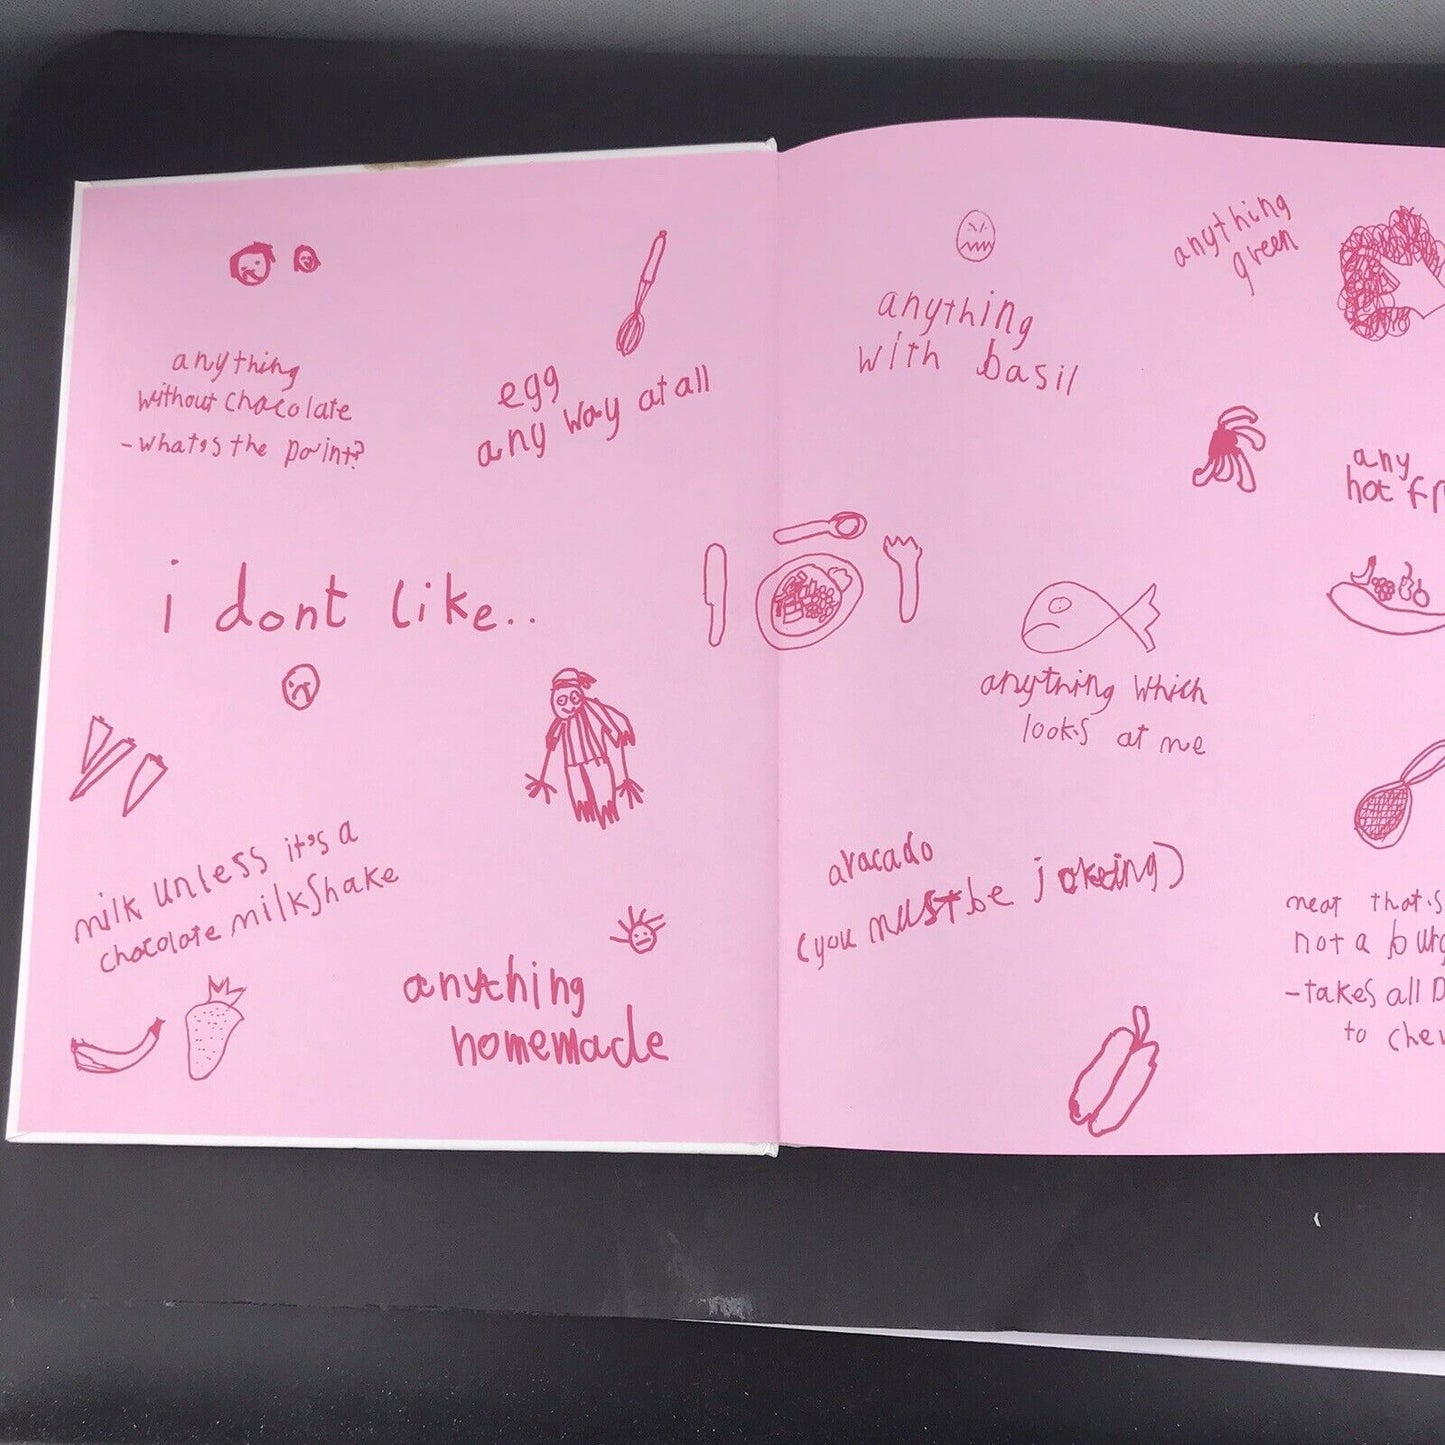 anything
without chocolate
-what's the point?
egg
any way at all
i dont like..
milk unless it's a
chocolate milkshake
anything
homemade
anything
with basil
anything
green
any
hot
anything which
looks at me
avacado
(you must be jokeing)
meat that's
not a
-takes all
to